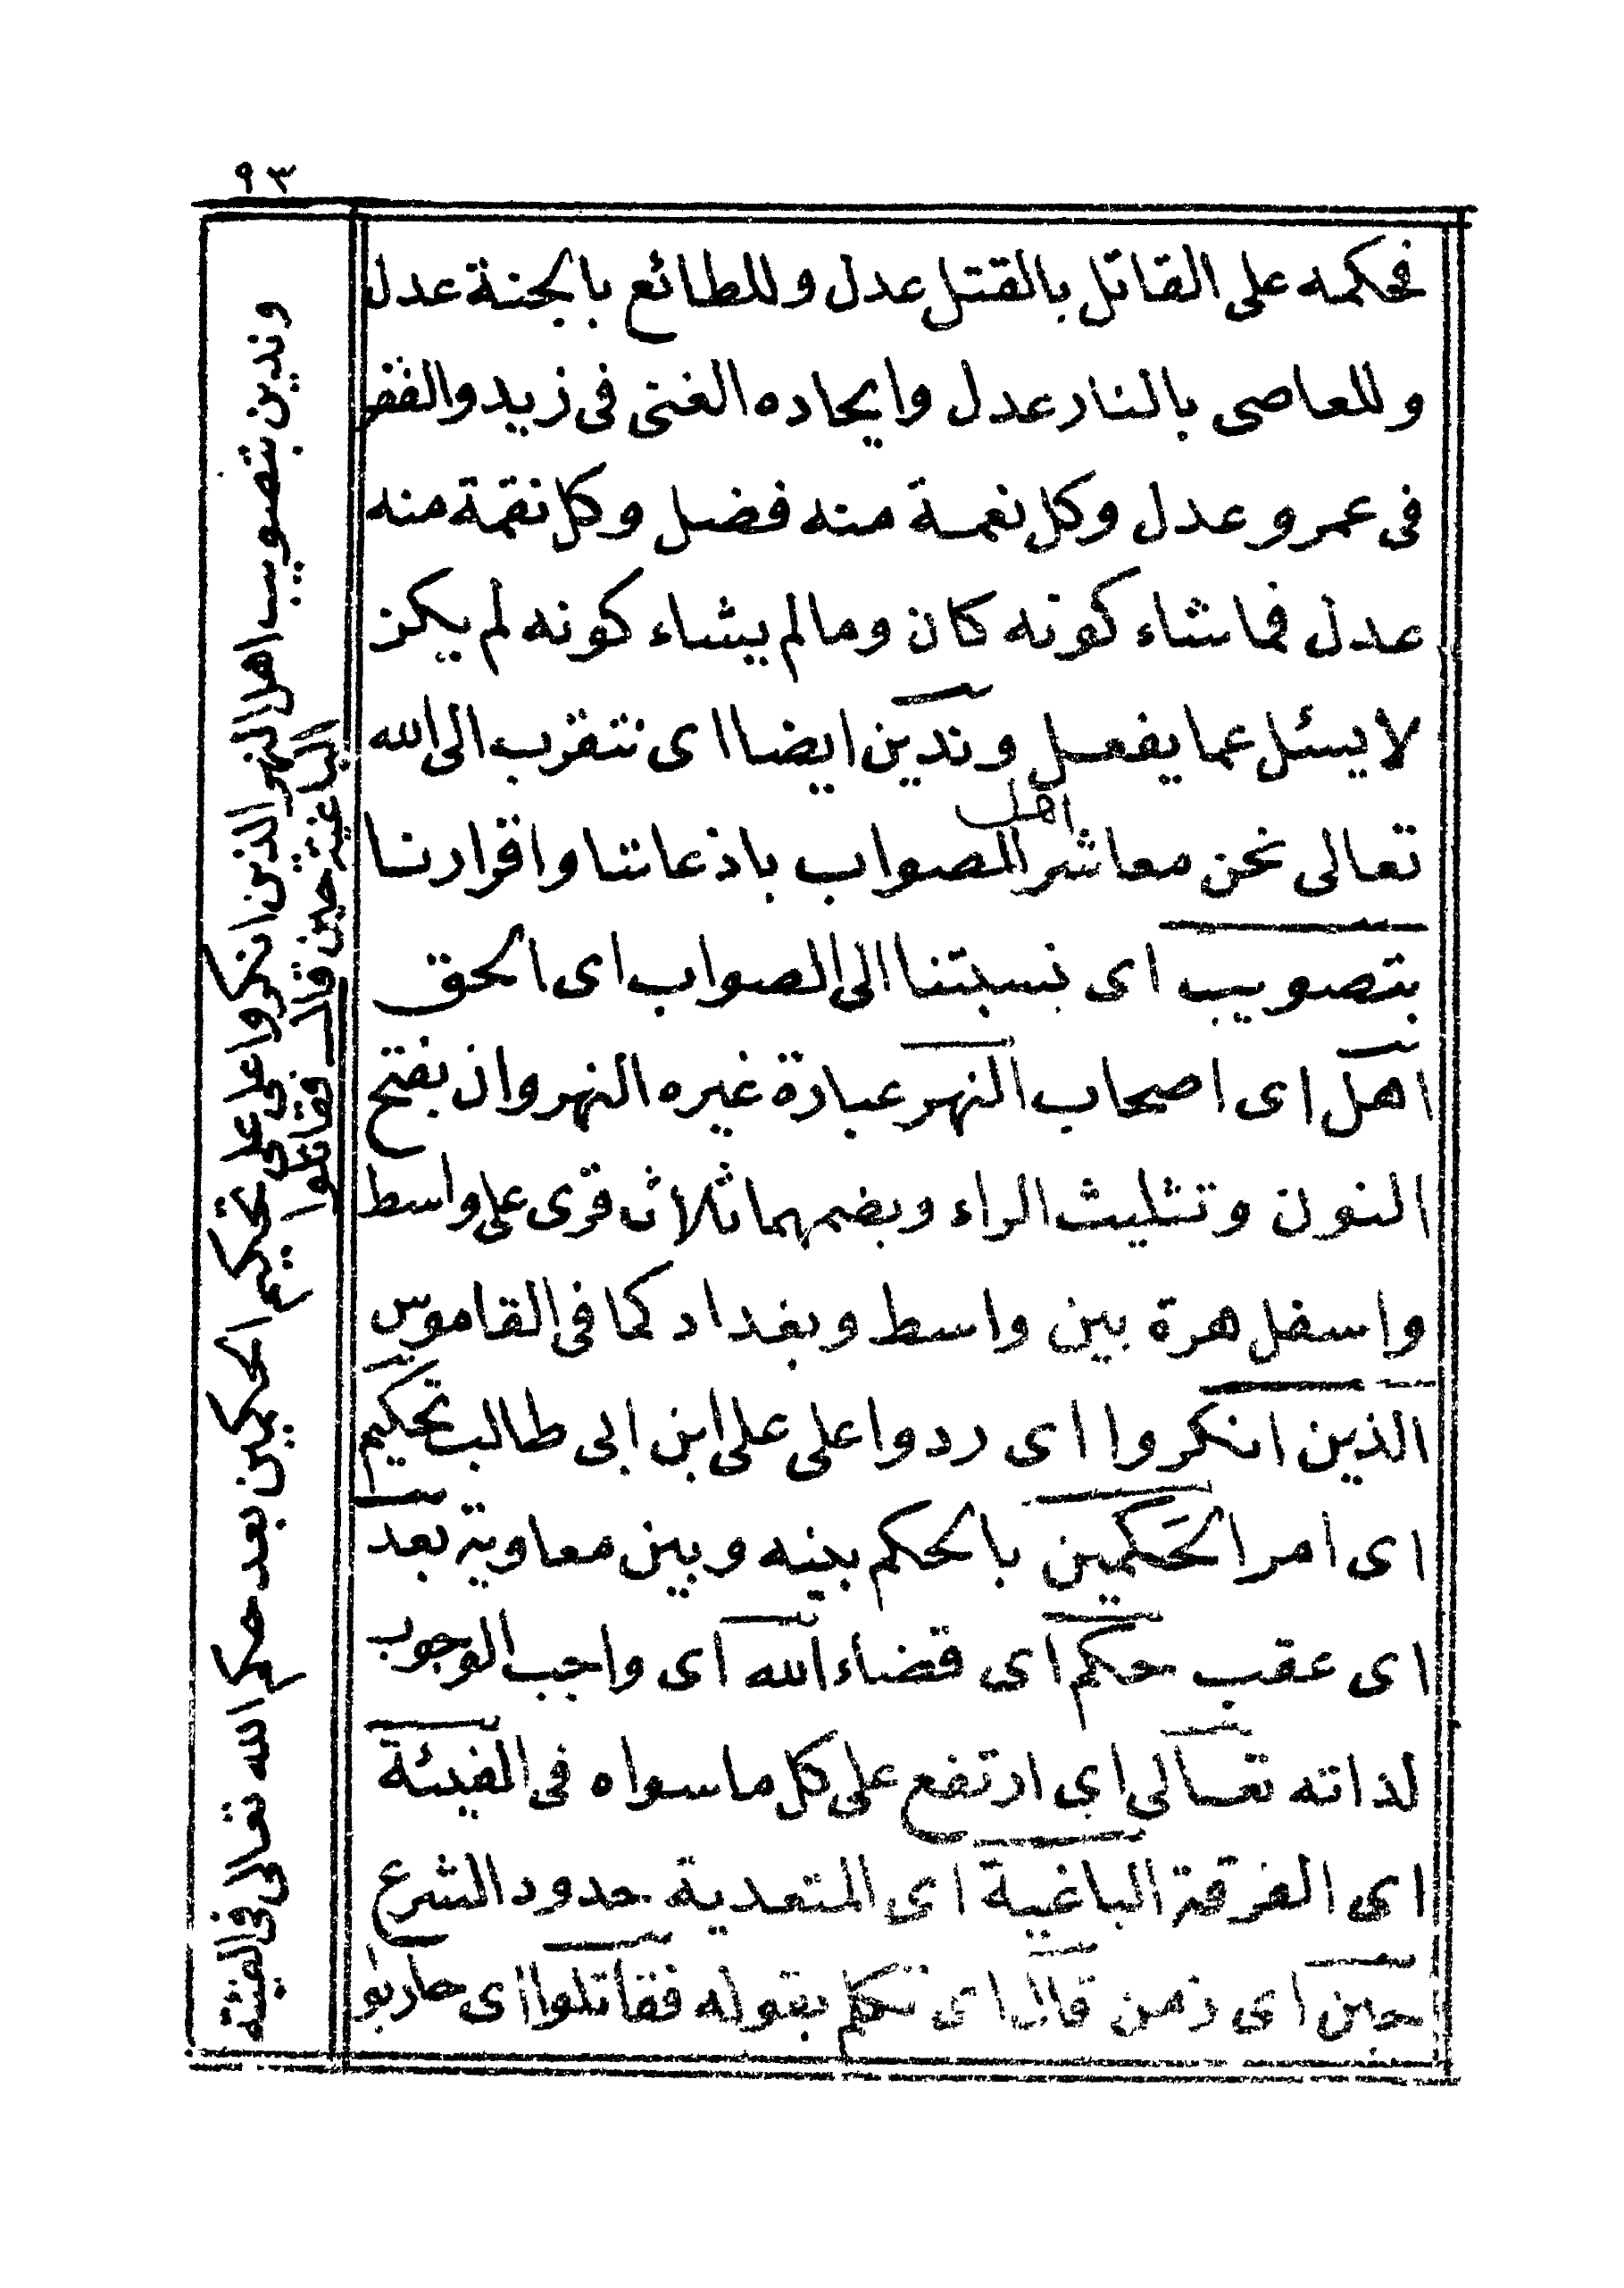 ٩٣
فحكمه على القاتل بالقتل عدل وللطائع بالجنة عدل
وللعاصى بالنار عدل وايجاده الغنى فى زيد والفقر
فى عمرو عدل وكل نعمة منه فضل وكل نقمة منه
عدل فما شاء كونه كان وما لم يشاء كونه لم يكن
لا يسئل عما يفعل وندين ايضا اى نتقرب الى الله
اهل
تعالى نحن معاشر الصواب باذعاننا واقرارنا
بتصويب اى نسبتنا الى الصواب اى الحق
اهل اى اصحاب النهر عبارة غيره النهروان بفتح
النون وتثليث الراء وبضمهما ثلاث قرى على واسط
واسفل هرة بين واسط وبغداد كما فى القاموس
الذين انكروا اى ردوا على على ابن ابى طالب تحكيم
اى امر الحَكمين بالحكم بينه وبين معاوية بعد
اى عقب حكم اى قضاء الله اى واجب الوجوب
لذاته تعالى اى ارتفع على كل ما سواه فى الفيئة
اى الفرقة الباغية اى المتعدية حدود الشرع
حين اى زمن قال اى تكلم بقوله فقاتلوا اى حاربوا
وندين بتصويب اهل النهر الذين انكروا على على تحكيم الحكمين بعد حكم الله تعالى فى الفيئة
الباغية حين قال فقاتلوا